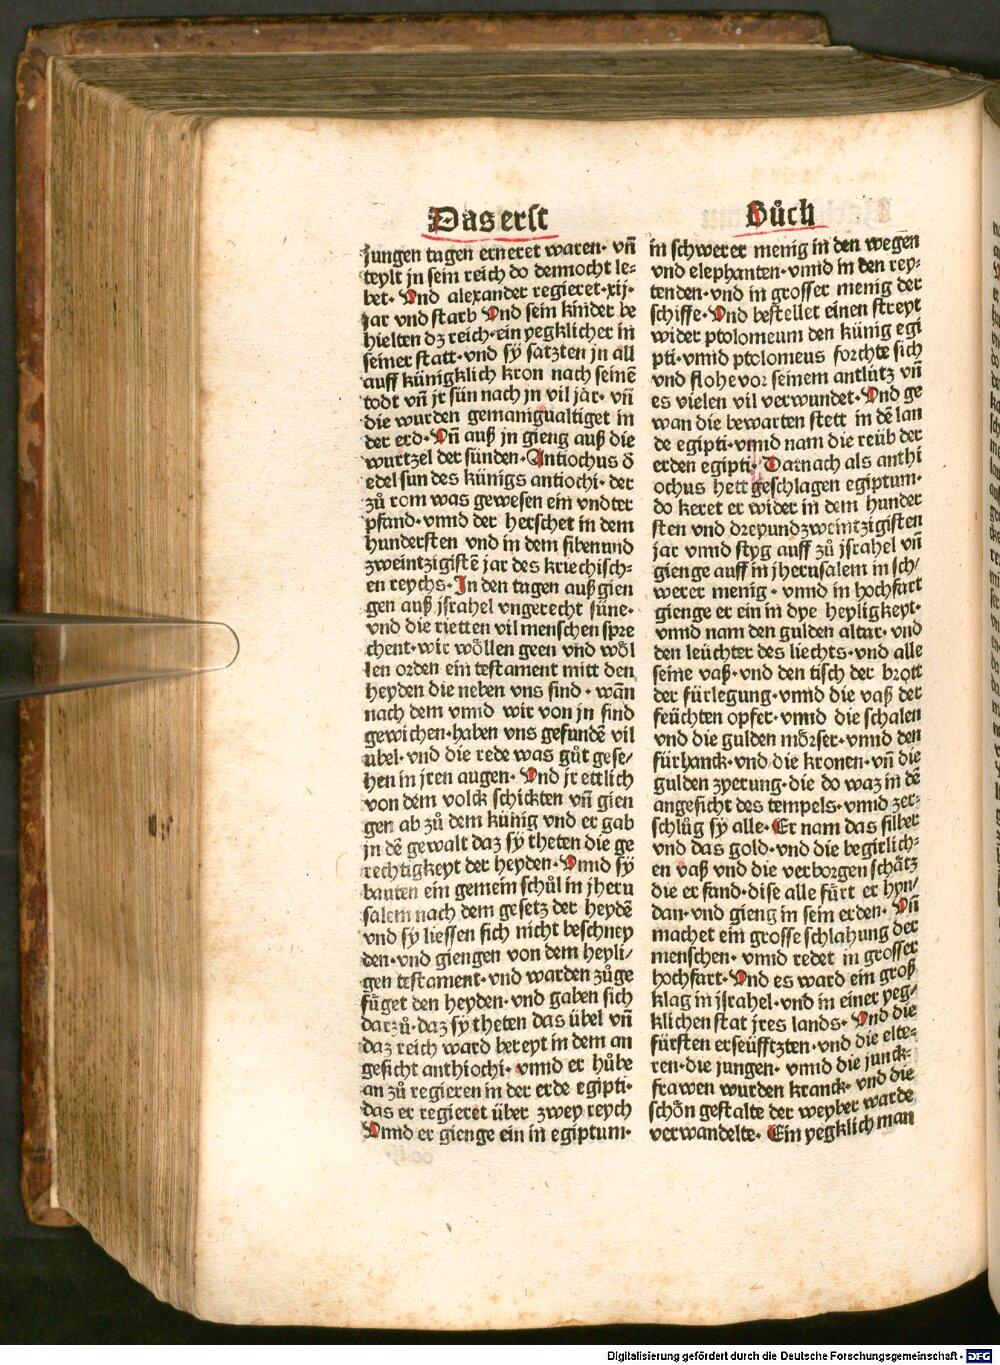 Das erst
Bůch
jungen tagen erneret waren· vñ
teylt jn sein reich do dennocht le⸗
bet· Vnd alexander regieret·xij·
jar vnd starb Vnd sein kinder be
hielten dz reich·ein yegklicher in
seiner statt·vnd sÿ satzten jn all
auff künigklich kron nach seinē
todt vñ jr sün nach jn vil jar· vñ
die wurden gemanigualtiget in
der erd·Vñ auß jn gieng auß die
wurtzel der sünden·Antiochus d̕
edel sun des künigs antiochi· der
zů rom was gewesen ein vnder
pfand·vnnd der herschet in dem
hundersten vnd in dem sibenund
zweintzigistē jar des kriechisch⸗
en reychs·In den tagen außgien
gen auß jsrahel vngerecht süne·
vnd die rietten vil menschen spre
chent·wir wöllen geen vnd wöl
len orden ein testament mitt den
heyden die neben vns sind · wañ
nach dem vnnd wir von jn sind
gewichen·haben vns gefundē vil
übel·vnd die rede was gůt gese⸗
hen in jren augen· Vnd jr ettlich
von dem volck schickten vñ gien
gen ab zů dem künig vnd er gab
jn dē gewalt daz sÿ theten die ge
rechtigkeyt der heyden·Vnnd sÿ
bauten ein gemein schůl in jheru
salem nach dem gesetz der heydē
vnd sÿ liessen sich nicht beschney
den·vnd giengen von dem heyli⸗
gen testament·vnd warden zůge
füget den heyden·vnd gaben sich
darzů·daz sÿ theten das übel vñ
daz reich ward bereyt in dem an
gesicht anthiochi· vnnd er hůbe
an zů regieren in der erde egipti·
das er regieret über zwey reych
Vnnd er gienge ein in egiptum·
in schwerer menig in den wegen
vnd elephanten·vnnd in den rey⸗
tenden·vnd in grosser menig der
schiffe·Vnd bestellet einen streyt
wider ptolomeum den künig egi
pti·vnnd ptolomeus forchte sich
vnd flohe vor seinem antlütz vñ
es vielen vil verwundet·Vnd ge
wan die bewarten stett in dē lan
de egipti·vnnd nam die reüb der
erden egipti· Darnach als anthi
ochus hett geschlagen egiptum·
do keret er wider in dem hunder
sten vnd dreyundzweintzigisten
jar vnnd styg auff zů jsrahel vñ
gienge auff in jherusalem in sch⸗
werer menig · vnnd in hochfart
gienge er ein in dye heyligkeyt·
vnnd nam den gulden altar· vnd
den leüchter des liechts·vnd alle
seine vaß·vnd den tisch der brott
der fürlegung·vnnd die vaß der
feüchten opfer·vnnd die schalen
vnd die gulden mörser·vnnd den
fürhanck·vnd die kronen·vñ die
gulden zyerung·die do waz in dē
angesicht des tempels·vnnd zer⸗
schlůg sÿ alle·Er nam das silber
vnd das gold·vnd die begirlich⸗
en vaß vnd die verborgen schätz
die er fand·dise alle fürt er hyn⸗
dan·vnd gieng in sein erden· Vñ
machet ein grosse schlahung der
menschen· vnnd redet in grosser
hochfart·Vnd es ward ein groß
klag in jsrahel·vnd in einer yeg⸗
klichen stat jres lands· Vnd die
fürsten erseüfftzten·vnd die elte⸗
ren·die jungen· vnnd die junck⸗
frawen wurden kranck· vnd die
schön gestalte der weyber warde
verwandelte· Ein yegklich man
Digitalisierung gefördert durch die Deutsche Forschungsgemeinschaft - DFG